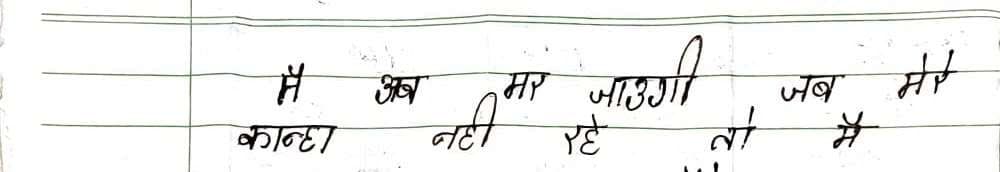 मै अब मर जाउगी जब मेरे
कान्हा नही रहे तो मै